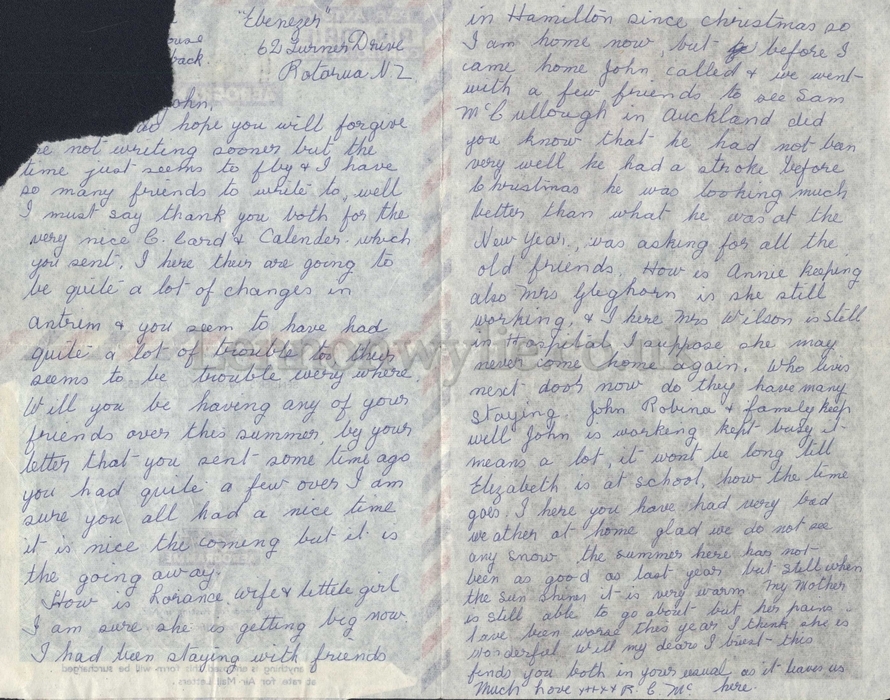 "Ebenezer"
62 Turner Drive
back.
Rotorua N.Z
ohn,
hope you will forgive
not writing sooner but the
time just seems to fly & I have
so many friends to write to, well
I must say thank you both for the
very nice C. Card & Calender. which
you sent. I here their are going to
be quite a lot of changes in
antrim & you seem to have had
quite a lot of trouble to, their
seems to be trouble every where.
Will you be having any of your
friends over this summer, by your
letter that you sent some time ago
you had quite a few over I am
sure you all had a nice time
it is nice the coming but it is
the going away.
How is Lorance wife & little girl
I am sure she is getting big now
I had been staying with friends
in Hamilton since christmas so
I am home now, but before I
came home John called & we went
with a few friends to see Sam
McCullough in Auckland did
you know that he had not ban
very well he had a stroke before
Christmas he was looking much
better than what he was at the
New Year, was asking for all the
old friends. How is Annie keeping
also Mrs Gleghorn is she still
working, & I here Mrs Wilson is still
in Hospital, I suppose she may
never come home again. Who lives
next door now do they have many
staying. John Robina & family keep
well John is working kept busy it
means a lot, it wont be long till
Elizabeth is at school, how the time
goes. I here you have had very bad
weather at home glad we do not see
any snow the summer here has not
been as good as last year but still when
the sun shines it is very warm My Mother
is still able to go about but her pains
have been worse this year I think she is
wonderful will my dears I trust this
finds you both in your usual as it leaves us
Much love xxxxx R. E. Mc here.
anything is enclosed form will be surcharged
at rate for Air Mail Letters
lennonwylie.co.uk